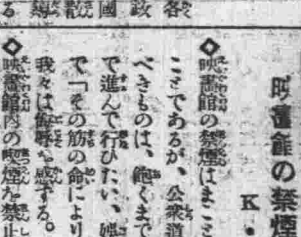 映画館の禁煙
K・
◇映畫館の禁煙はまこ
とであるが、公衆道
べきものは、飽くまで
で進んで行ひたい、娯
で「その筋の命により
我々は侮辱を感ずる。
◇映畫館内の喫煙を禁止